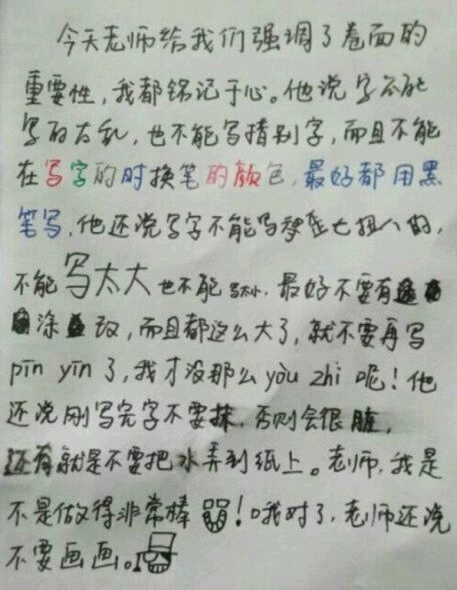 今天老师给我们强调了卷面的
重要性，我都铭记于心。他说字不能
写的太乱，也不能写猜别字，而且不能
在写字的时换笔的颜色，最好都用黑
笔写，他还说写字不能写 歪七扭八的，
不能写太大也不能写太小，最好不要有
涂 改，而且都这么大了，就不要再写
pīn yīn 了，我才没那么 yòu zhi 呢！他
还说刚写完字不要抹，否则会很脏，
还有就是不要把水弄到纸上。老师，我是
不是做得非常棒！哦对了，老师还说
不要画画。